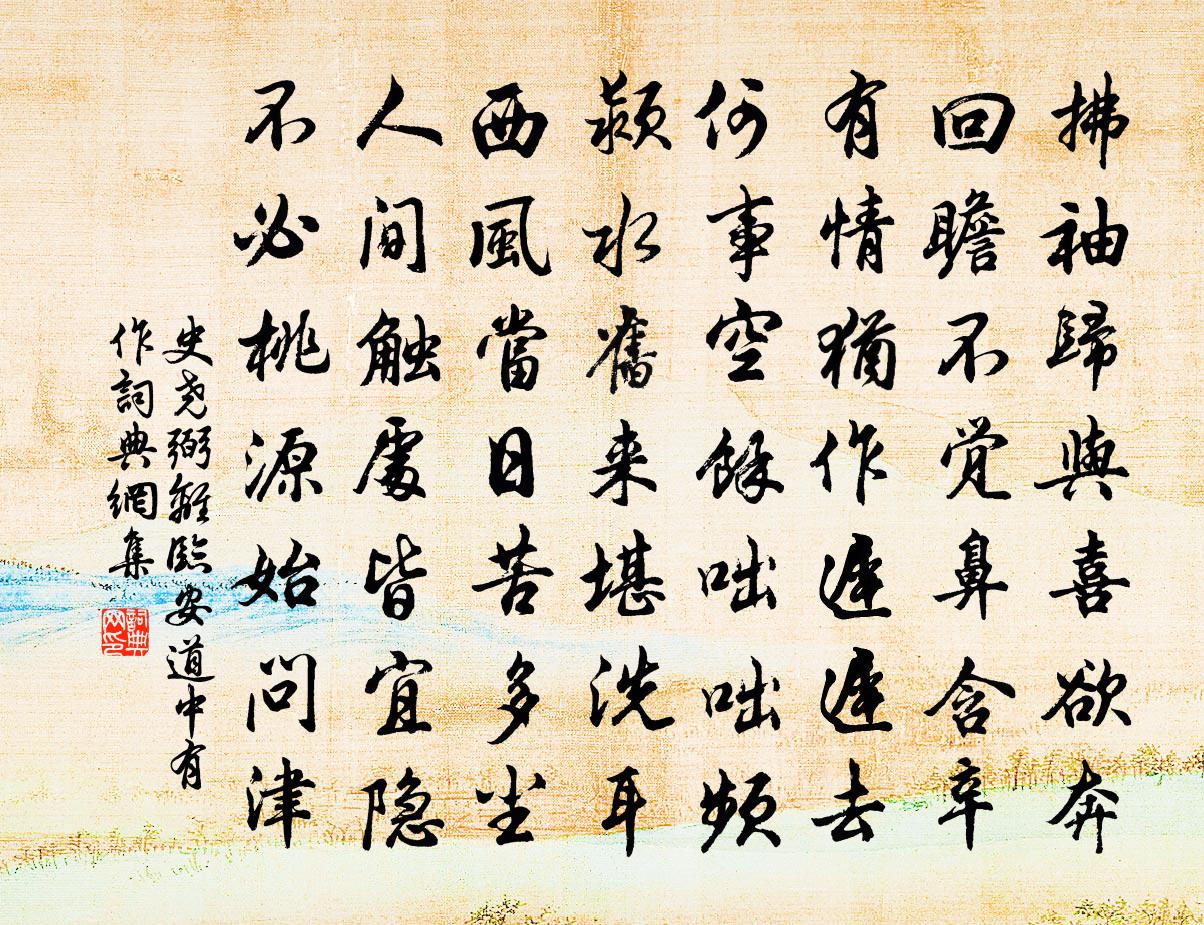 拂袖歸與喜欲奔
回瞻不觉鼻含辛
有情猶作遲遲去
何事空餘咄咄頻
潁水舊来堪洗耳
西風當日苦多尘
人间触處皆宜隐
不必桃源始问津
史尧弼離臨安道中有
作詞典網集
詞典网印